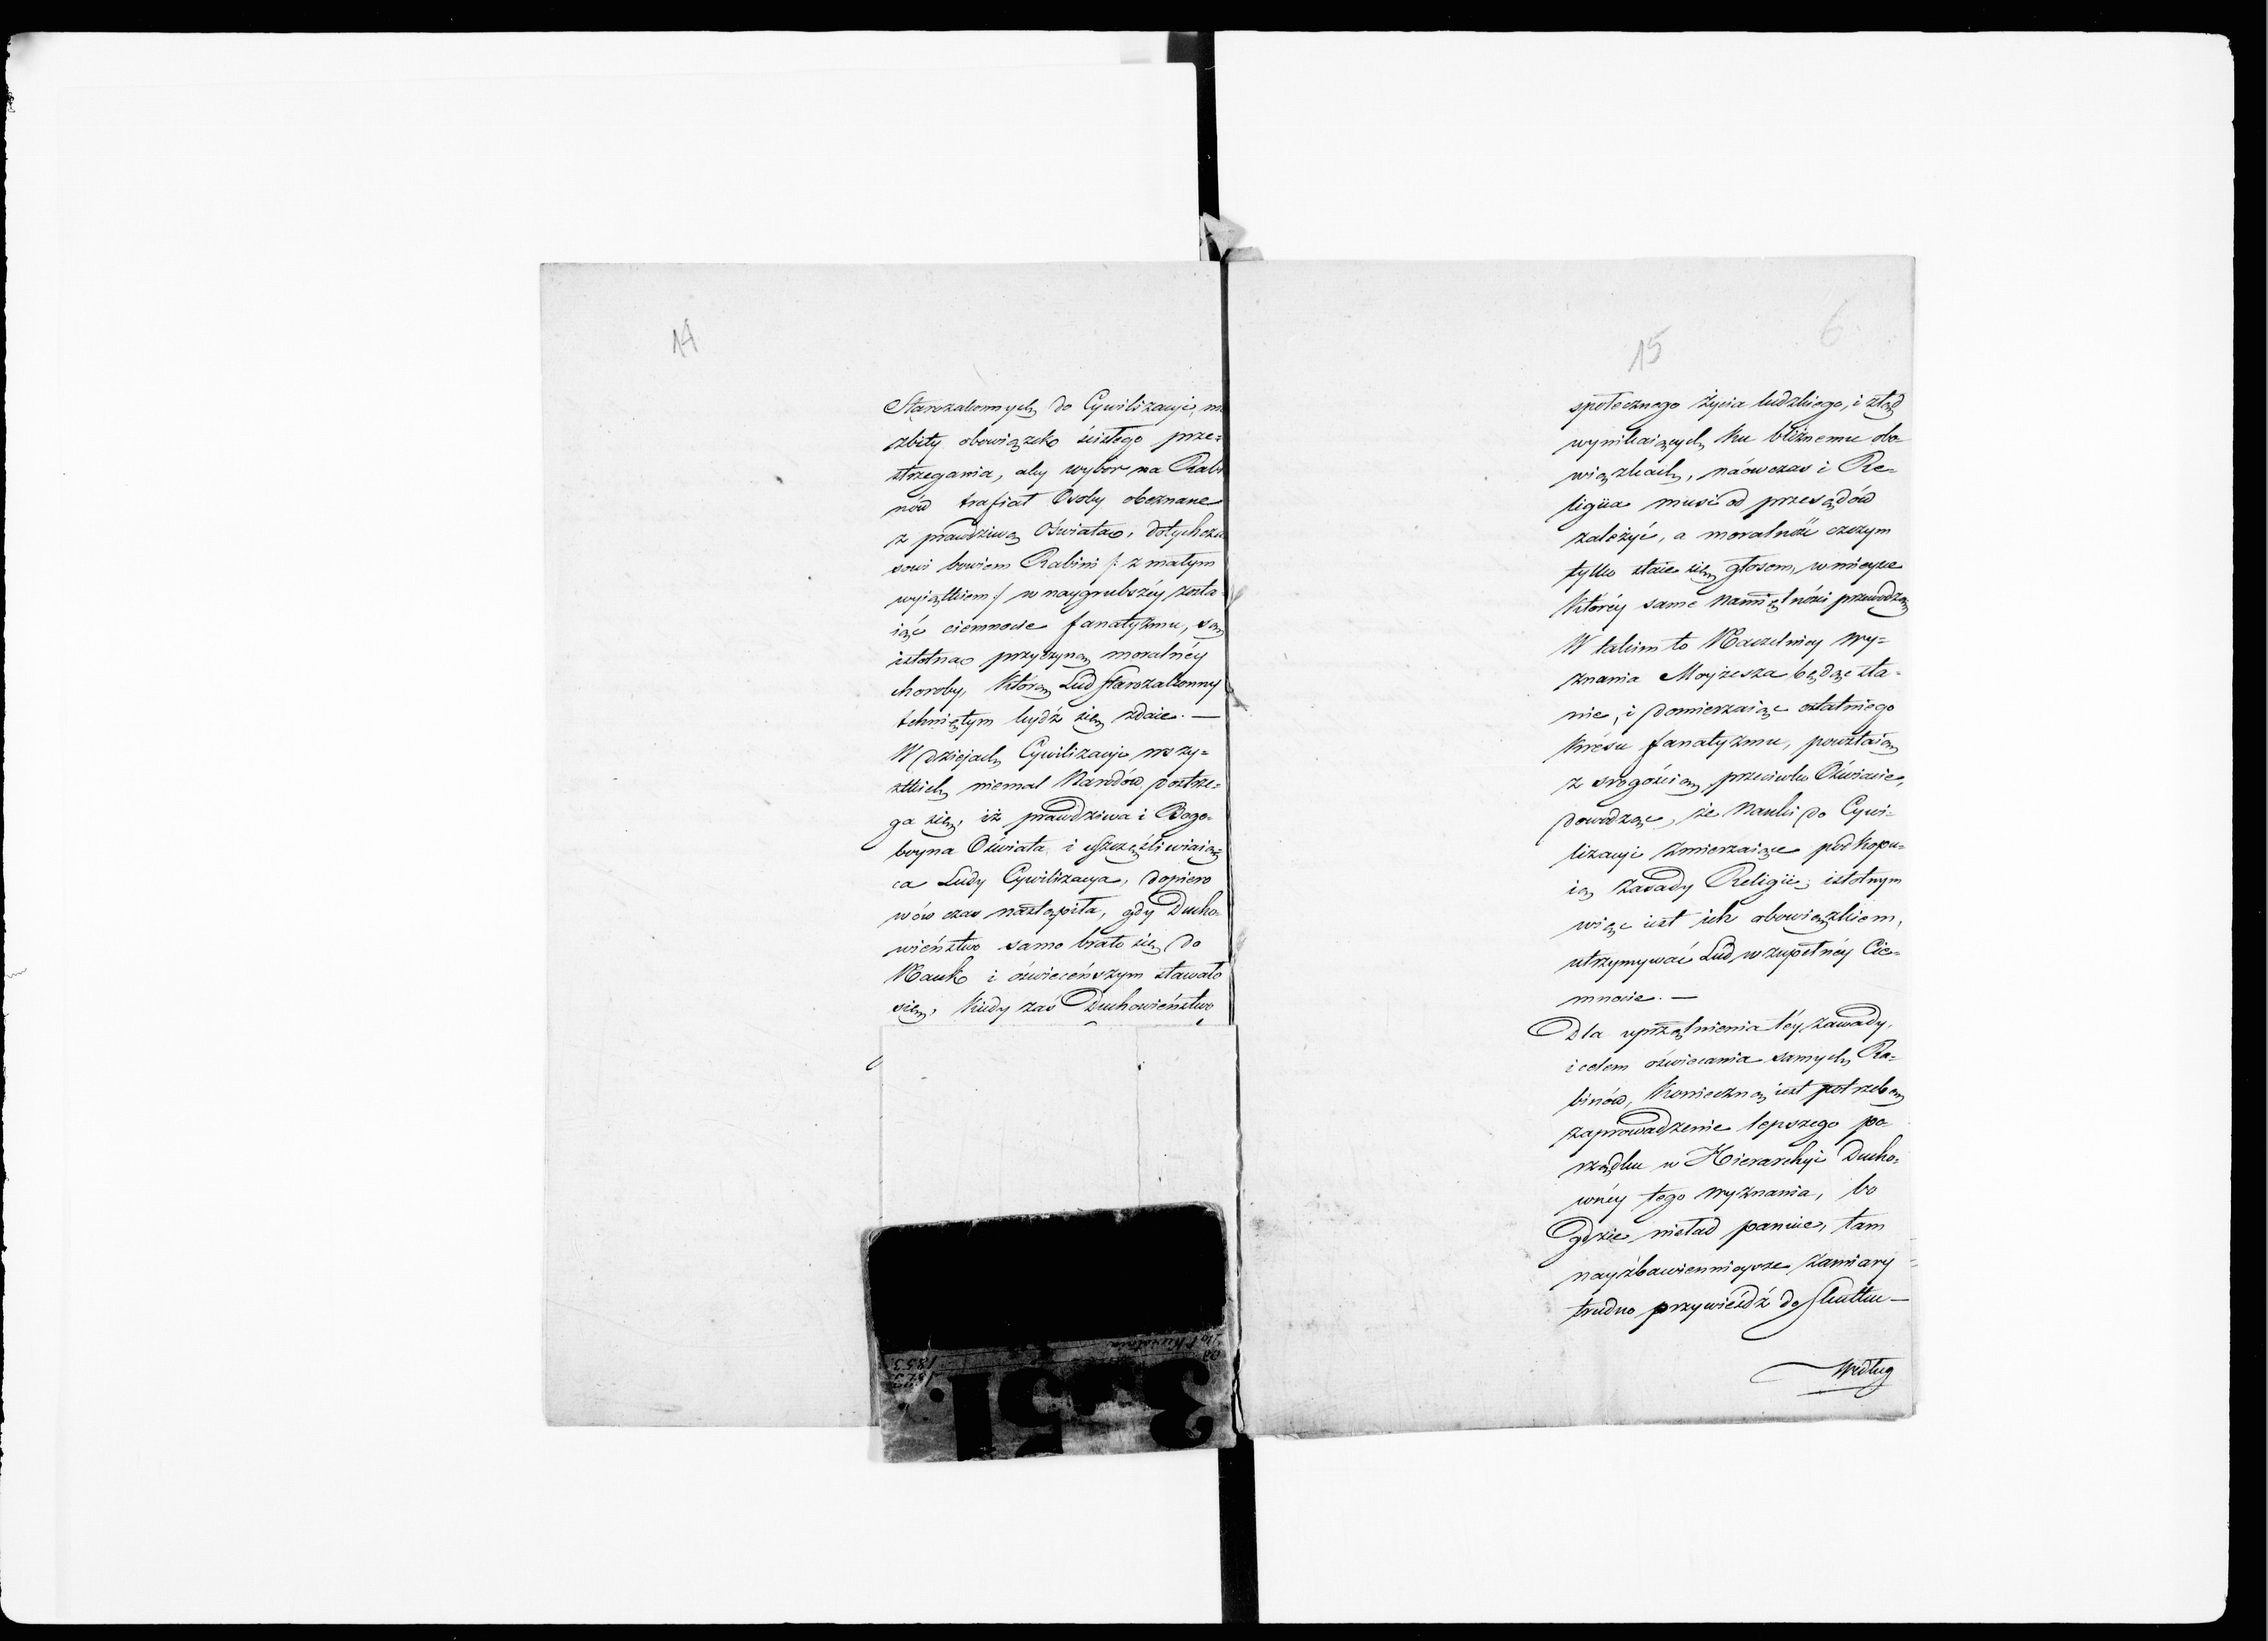 14
Starozakonnych do Cywilizacyi, 
zbity obowiązek ścisłego prze=
strzegania, aby wybór na Rabi
nów trafiał Osoby obeznane
z prawdziwą Oświatą, dotychcza
sowi bowiem Rabini /: z małym
wyiątkiem :/ w naygrubszéy zosta
iąc ciemnocie fanatyzmu, są
istotną przyczyną moralnéy
choroby, którą Lud Starozakonny
tchniętym bydź się zdaie. —
W dziejach Cywilizacyi wszy=
stkich niemal Narodów postrze=
ga się, iż prawdziwa i Bogo=
boyna Oświata i uszczęśliwiaią=
ca Ludy Cywilizacya, dopiero
wów czas nastąpiła, gdy Ducho=
wieństwo samo brało się do
Nauk i oświeceńszym stawało
się, kiedy zaś Duchowieństwo
3 51
1823
1853
15
6
społecznego życia ludzkiego, i ztąd
wynikaiących ku bliźnemu obo
wiązkach, náówczas i Re=
ligiia musi od przesądów
zależyć, a moralność czczym
tylko staie się głosem, w mieysce
któréy same namiętności przewodzą
W takim to Naczelnicy Wy=
znania Moyżesza będąc sta=
nie, i domierzaiąc ostatniego
krésu fanatyzmu, powstaią
z srogością przeciwko Oświacie,
dowodząc, że Nauki do Cywi=
lizacyi zmierzaiące podkopu=
ią zasady Religii; istotnym
więc iest ich obowiązkiem,
utrzymywać Lud w zupełnéy Cie=
mnocie. —
Dla uprzątnienia téy zawady,
i celem oświecania samych Ra=
binów, konieczną iest potrzebą
zaprowadzenie lepszego po=
rządku w Hierarchyi Ducho=
wnéy tego wyznania, bo
gdzie nieład panuie, tam
nayzbawiennieysze zamiary
trudno przywieśdź do Skutku —
Według